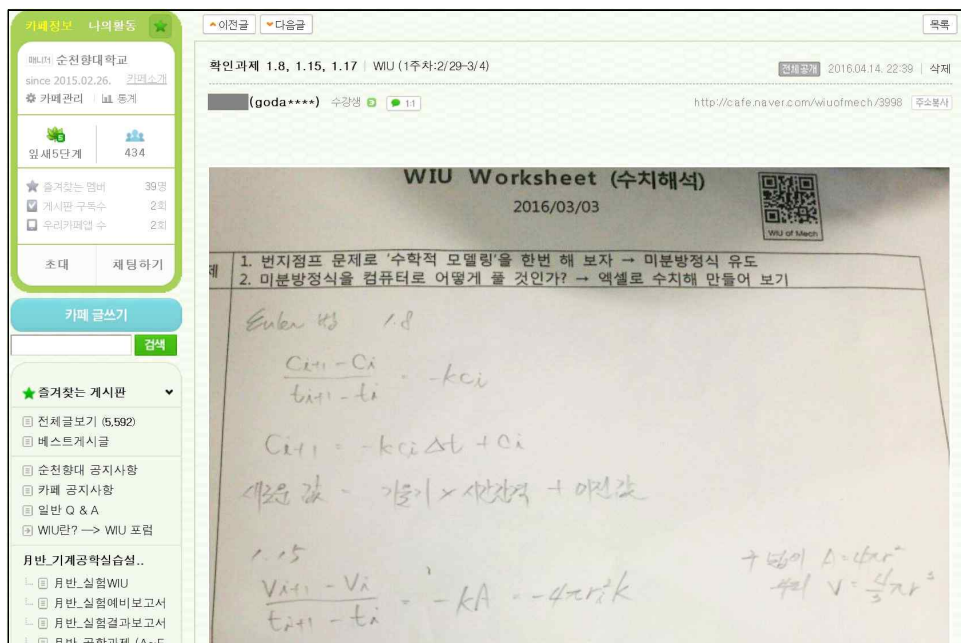 카페정보 나의활동
매니저 순천향대학교
since 2015.02.26. 카페소개
카페관리 통계
잎새5단계 434
즐겨찾는 멤버 39명
게시판 구독수 2회
우리카페앱 수 2회
초대 채팅하기
카페 글쓰기
검색
즐겨찾는 게시판
전체글보기 (5,592)
베스트게시글
순천향대 공지사항
카페 공지사항
일반 Q & A
WIU란? ─> WIU 포럼
月반_기계공학실습설..
月반_실험WIU
月반_실험예비보고서
月반_실험결과보고서
이전글 다음글 목록
확인과제 1.8, 1.15, 1.17 | WIU (1주차:2/29-3/4) 전체공개 2016.04.14. 22:39 | 삭제
(goda****) 수강생 1:1 http://cafe.naver.com/wiuofmech/3998 주소복사
WIU Worksheet (수치해석)
2016/03/03
WIU of Mech
제
1. 번지점프 문제로 '수학적 모델링'을 한번 해 보자 → 미분방정식 유도
2. 미분방정식을 컴퓨터로 어떻게 풀 것인가? → 엑셀로 수치해 만들어 보기
Euler 법 1.8
Ci+1 - Ci / ti+1 - ti = -kci
Ci+1 = -kci Δt + Ci
새로운 값 = 기울기 × 시간간격 + 이전값
1.15
Vi+1 - Vi / ti+1 - ti = -kA = -4πri²k
구 넓이 A = 4πr²
부피 V = 4/3 πr³